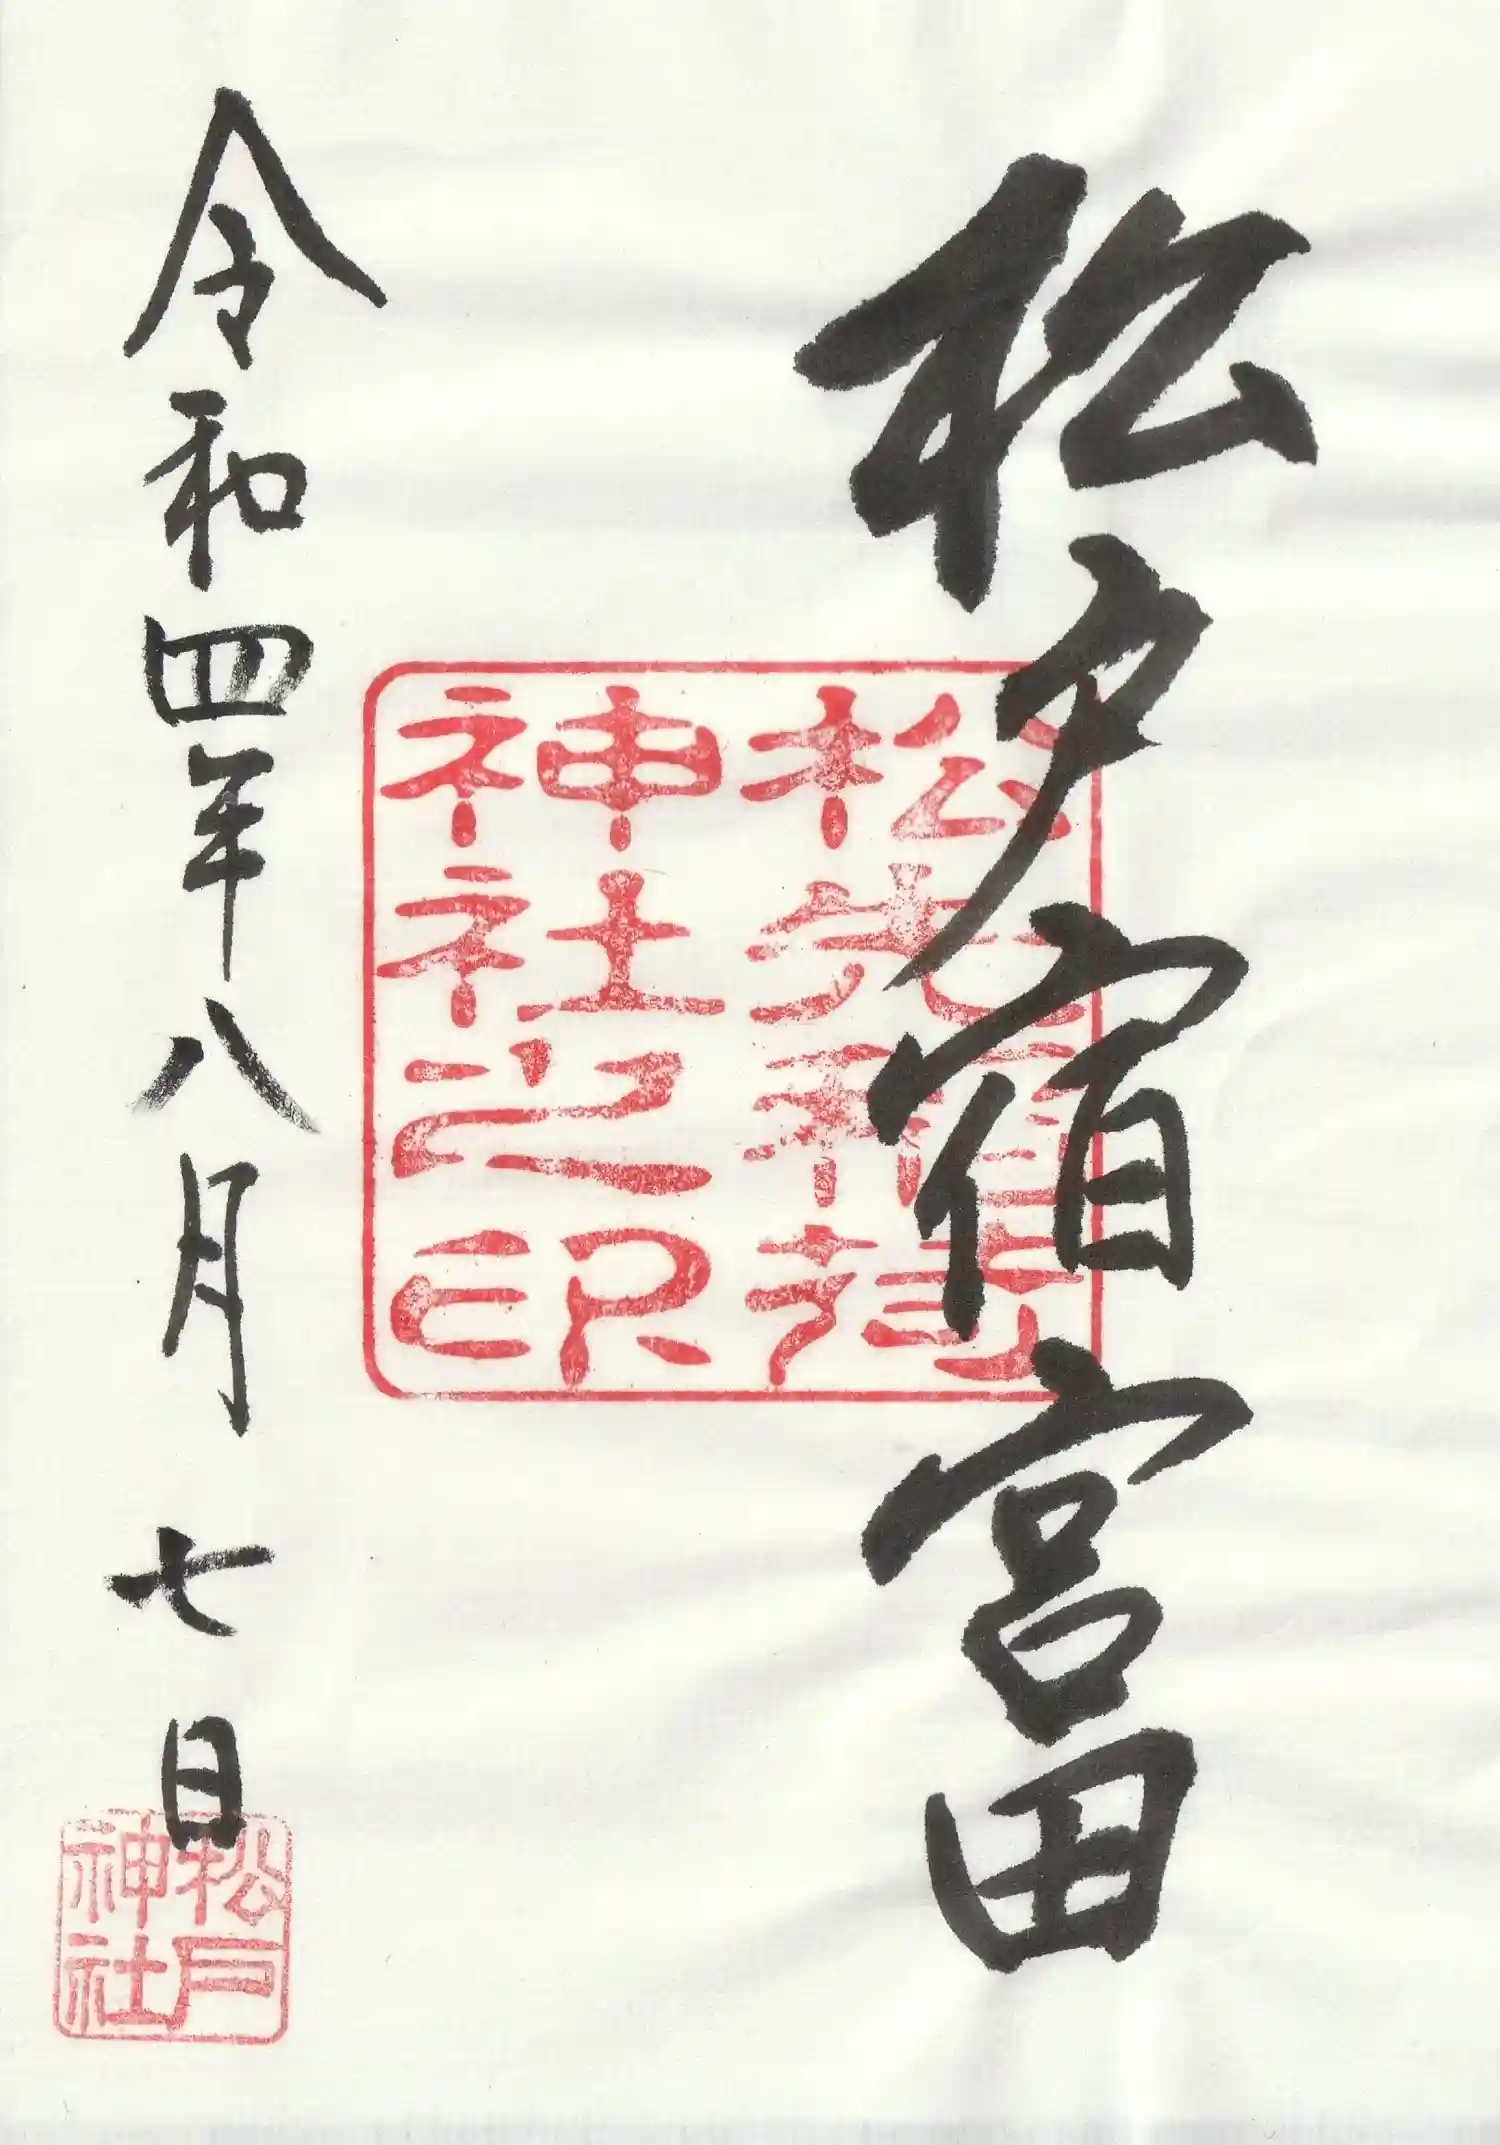 松戸宿宮田
松先稲荷
神社之印
令和四年八月七日
松戸
神社